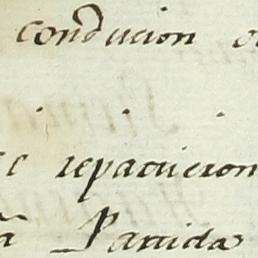 conducion
repartieron
Partida